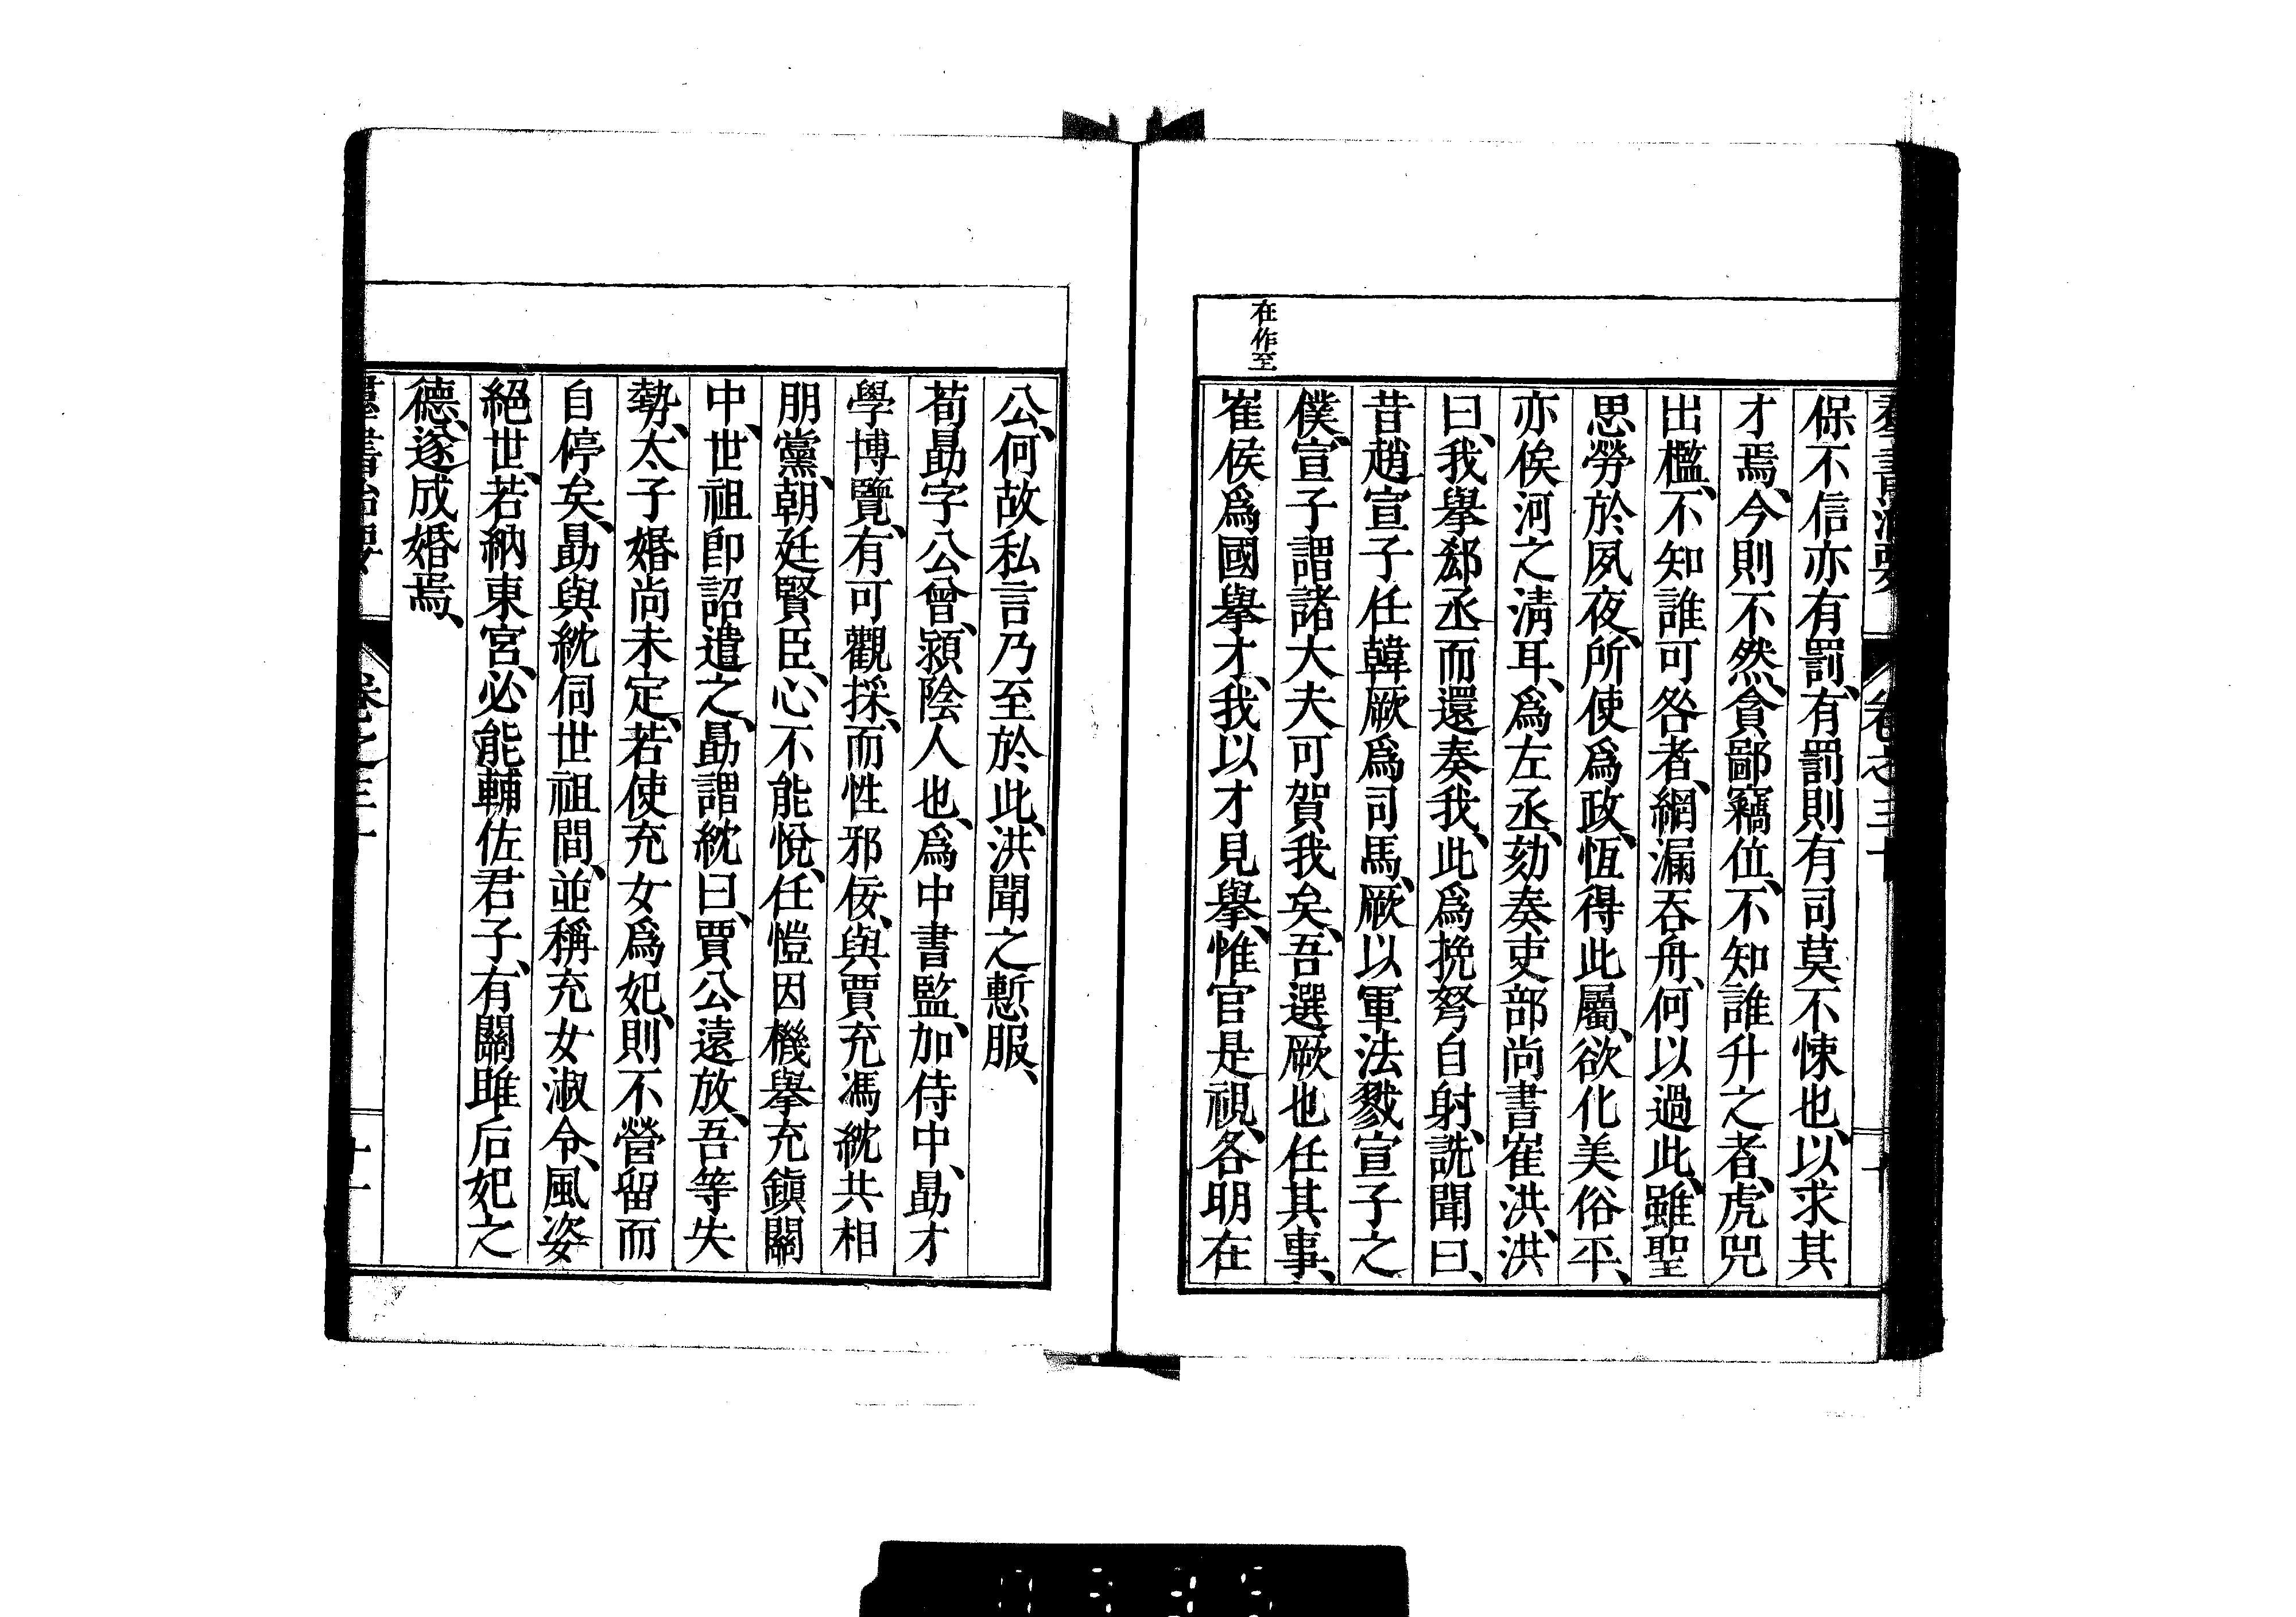 羣書治要 卷之三十 十
保不信亦有罰、有罰則有司莫不悚也、以求其
才焉、今則不然、貪鄙竊位、不知誰升之者、虎兕
出檻、不知誰可咎者、網漏吞舟、何以過此、雖聖
思勞於夙夜、所使爲政、恆得此屬、欲化美俗平、
亦俟河之淸耳、爲左丞、劾奏吏部尚書崔洪、洪
曰、我擧郄丞而還奏我、此爲挽弩自射、詵聞曰、
昔趙宣子任韓厥爲司馬、厥以軍法戮宣子之
僕、宣子謂諸大夫可賀我矣、吾選厥也任其事、
崔侯爲國擧才、我以才見擧、惟官是視、各明在
在作至
公、何故私言乃至於此、洪聞之慙服、
荀勗字公曾、潁陰人也、爲中書監、加侍中、勗才
學博覽、有可觀採、而性邪佞、與賈充馮紞共相
朋黨、朝廷賢臣、心不能悅、任愷因機擧充鎭關
中、世祖卽詔遣之、勗謂紞曰、賈公遠放、吾等失
勢、太子婚尚未定、若使充女爲妃、則不營留而
自停矣、勗與紞伺世祖間、並稱充女淑令、風姿
絕世、若納東宮、必能輔佐君子、有關雎后妃之
德、遂成婚焉、
羣書治要 卷之三十 十一